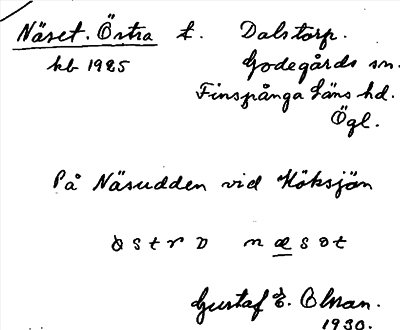 Näset. Östra t. Dalstorp.
kb 1925 Godegårds sn.
Finspånga läns hd.
Ögl.
På Näsudden vid Höksjön
Gustaf E. Olson.
1930.